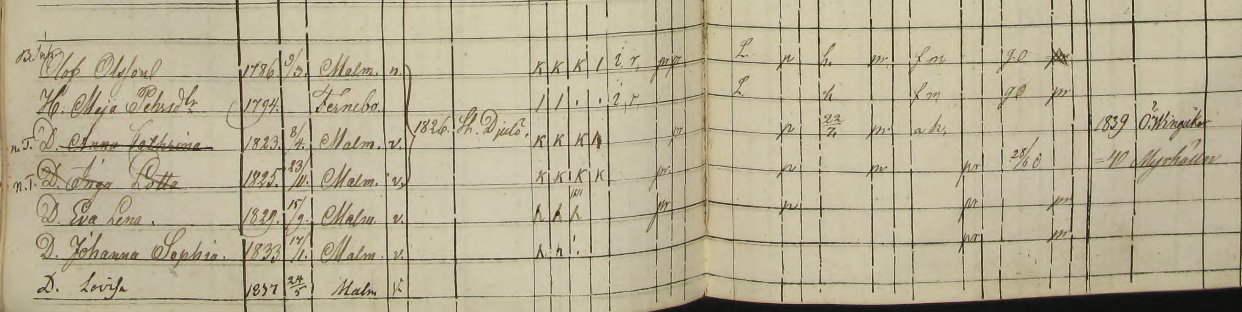 Olof Olsson 1786 9/3 Malm. n. K K K 1 2 r. L. p h. m. f m go
H. Maja Pehrsdtr 1794. Fernebo. 1 1 . . 2 r. L h f m go pr
n.T. D. Anna Cathrina 1823 8/4 Malm. v. 1826. St. Djulö. K K K p 22/7 m a.h. 1839 Ö.Wingåker
n.T. D. Inga Lotta 1825. 23/11 Malm. v. K K K K pr. p m pr 28/6 0 =40 Myrhällen
D. Eva Lena. 1829. 15/9 Malm v. pr p pr pr
D. Johanna Sophia. 1833 17/1 Malm. v. pr pr
D. Lovisa 1837 24/5 Malm v.